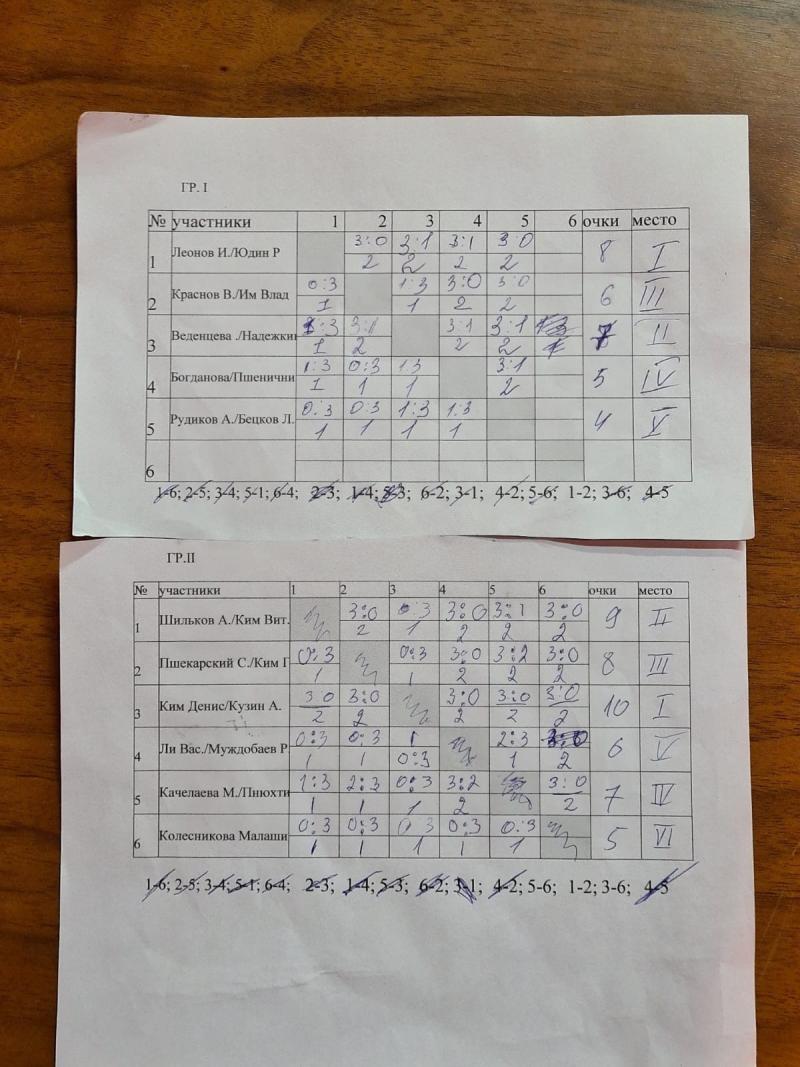 ГР. I
№ участники 1 2 3 4 5 6 очки место
3:0 3:1 3:1 3:0
1 Леонов И./Юдин Р 8 I
2 2 2 2
0:3 1:3 3:0 3:0
2 Краснов В./Им Влад 6 III
1 1 2 2
1:3 3:1 3:1 3:1
3 Веденцева ./Надежкин 7 II
1 2 2 2
1:3 0:3 1:3 3:1
4 Богданова/Пшенични 5 IV
1 1 1 2
0:3 0:3 1:3 1:3
5 Рудиков А./Бецков Л. 4 V
1 1 1 1
6
1-6; 2-5; 3-4; 5-1; 6-4; 2-3; 1-4; 5-3; 6-2; 3-1; 4-2; 5-6; 1-2; 3-6; 4-5
ГР.II
№ участники 1 2 3 4 5 6 очки место
3:0 0:3 3:0 3:1 3:0
1 Шильков А./Ким Вит. 9 II
2 1 2 2 2
0:3 0:3 3:0 3:2 3:0
2 Пшекарский С./Ким Г 8 III
1 1 2 2 2
3:0 3:0 3:0 3:0 3:0
3 Ким Денис/Кузин А. 10 I
2 2 2 2 2
0:3 0:3 1 2:3 3:0
4 Ли Вас./Муждобаев Р 6 V
1 1 0:3 1 2
1:3 2:3 0:3 3:2 3:0
5 Качелаева М./Пнюхти 7 IV
1 1 1 2 2
0:3 0:3 0:3 0:3 0:3
6 Колесникова Малаши 5 VI
1 1 1 1 1
1-6; 2-5; 3-4; 5-1; 6-4; 2-3; 1-4; 5-3; 6-2; 3-1; 4-2; 5-6; 1-2; 3-6; 4-5